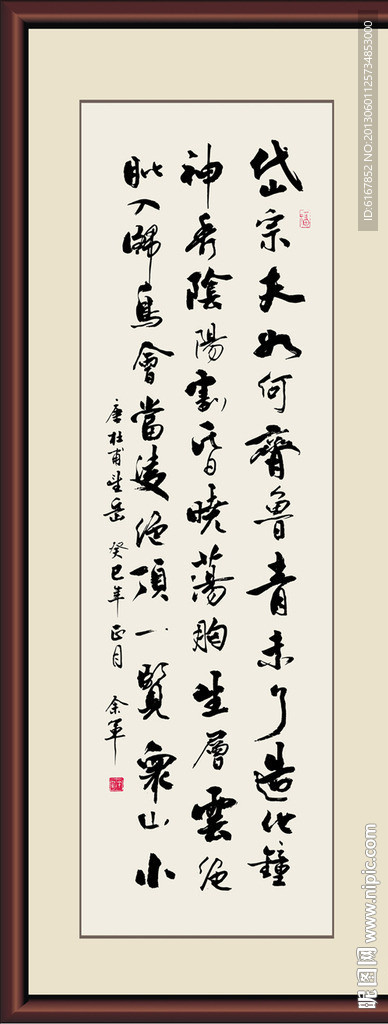 岱宗夫如何齊魯青未了造化鐘
神秀陰陽割昏曉蕩胸生層雲絕
眦入歸鳥會當凌絕頂一覽眾山小
唐杜甫望岳 癸巳年正月 余軍
ID:6167852 NO:20130601125734853000
昵图网 www.nipic.com